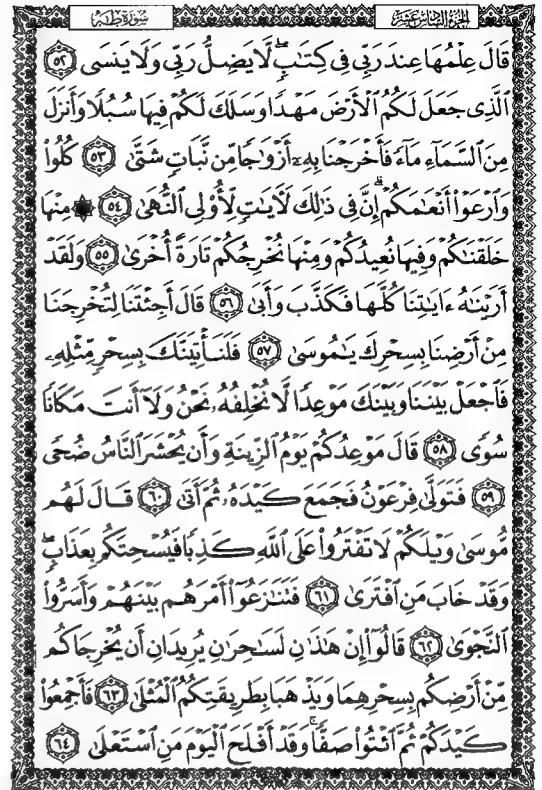 الجزء السادس عشر
سورة طه
قَالَ عِلْمُهَا عِندَ رَبِّى فِى كِتَٰبٍ ۖ لَّا يَضِلُّ رَبِّى وَلَا يَنسَى ٥٢
ٱلَّذِى جَعَلَ لَكُمُ ٱلْأَرْضَ مَهْدًا وَسَلَكَ لَكُمْ فِيهَا سُبُلًا وَأَنزَلَ
مِنَ ٱلسَّمَآءِ مَآءً فَأَخْرَجْنَا بِهِۦٓ أَزْوَٰجًا مِّن نَّبَاتٍ شَتَّىٰ ٥٣ كُلُوا۟
وَٱرْعَوْا۟ أَنْعَٰمَكُمْ ۗ إِنَّ فِى ذَٰلِكَ لَـَٔايَٰتٍ لِّأُو۟لِى ٱلنُّهَىٰ ٥٤ ۞ مِنْهَا
خَلَقْنَٰكُمْ وَفِيهَا نُعِيدُكُمْ وَمِنْهَا نُخْرِجُكُمْ تَارَةً أُخْرَىٰ ٥٥ وَلَقَدْ
أَرَيْنَٰهُ ءَايَٰتِنَا كُلَّهَا فَكَذَّبَ وَأَبَىٰ ٥٦ قَالَ أَجِئْتَنَا لِتُخْرِجَنَا
مِنْ أَرْضِنَا بِسِحْرِكَ يَٰمُوسَىٰ ٥٧ فَلَنَأْتِيَنَّكَ بِسِحْرٍ مِّثْلِهِۦ
فَٱجْعَلْ بَيْنَنَا وَبَيْنَكَ مَوْعِدًا لَّا نُخْلِفُهُۥ نَحْنُ وَلَآ أَنتَ مَكَانًا
سُوًى ٥٨ قَالَ مَوْعِدُكُمْ يَوْمُ ٱلزِّينَةِ وَأَن يُحْشَرَ ٱلنَّاسُ ضُحًى
٥٩ فَتَوَلَّىٰ فِرْعَوْنُ فَجَمَعَ كَيْدَهُۥ ثُمَّ أَتَىٰ ٦٠ قَالَ لَهُم
مُّوسَىٰ وَيْلَكُمْ لَا تَفْتَرُوا۟ عَلَى ٱللَّهِ كَذِبًا فَيُسْحِتَكُم بِعَذَابٍ ۖ
وَقَدْ خَابَ مَنِ ٱفْتَرَىٰ ٦١ فَتَنَٰزَعُوٓا۟ أَمْرَهُم بَيْنَهُمْ وَأَسَرُّوا۟
ٱلنَّجْوَىٰ ٦٢ قَالُوٓا۟ إِنْ هَٰذَٰنِ لَسَٰحِرَٰنِ يُرِيدَانِ أَن يُخْرِجَاكُم
مِّنْ أَرْضِكُم بِسِحْرِهِمَا وَيَذْهَبَا بِطَرِيقَتِكُمُ ٱلْمُثْلَىٰ ٦٣ فَأَجْمِعُوا۟
كَيْدَكُمْ ثُمَّ ٱئْتُوا۟ صَفًّا ۚ وَقَدْ أَفْلَحَ ٱلْيَوْمَ مَنِ ٱسْتَعْلَىٰ ٦٤